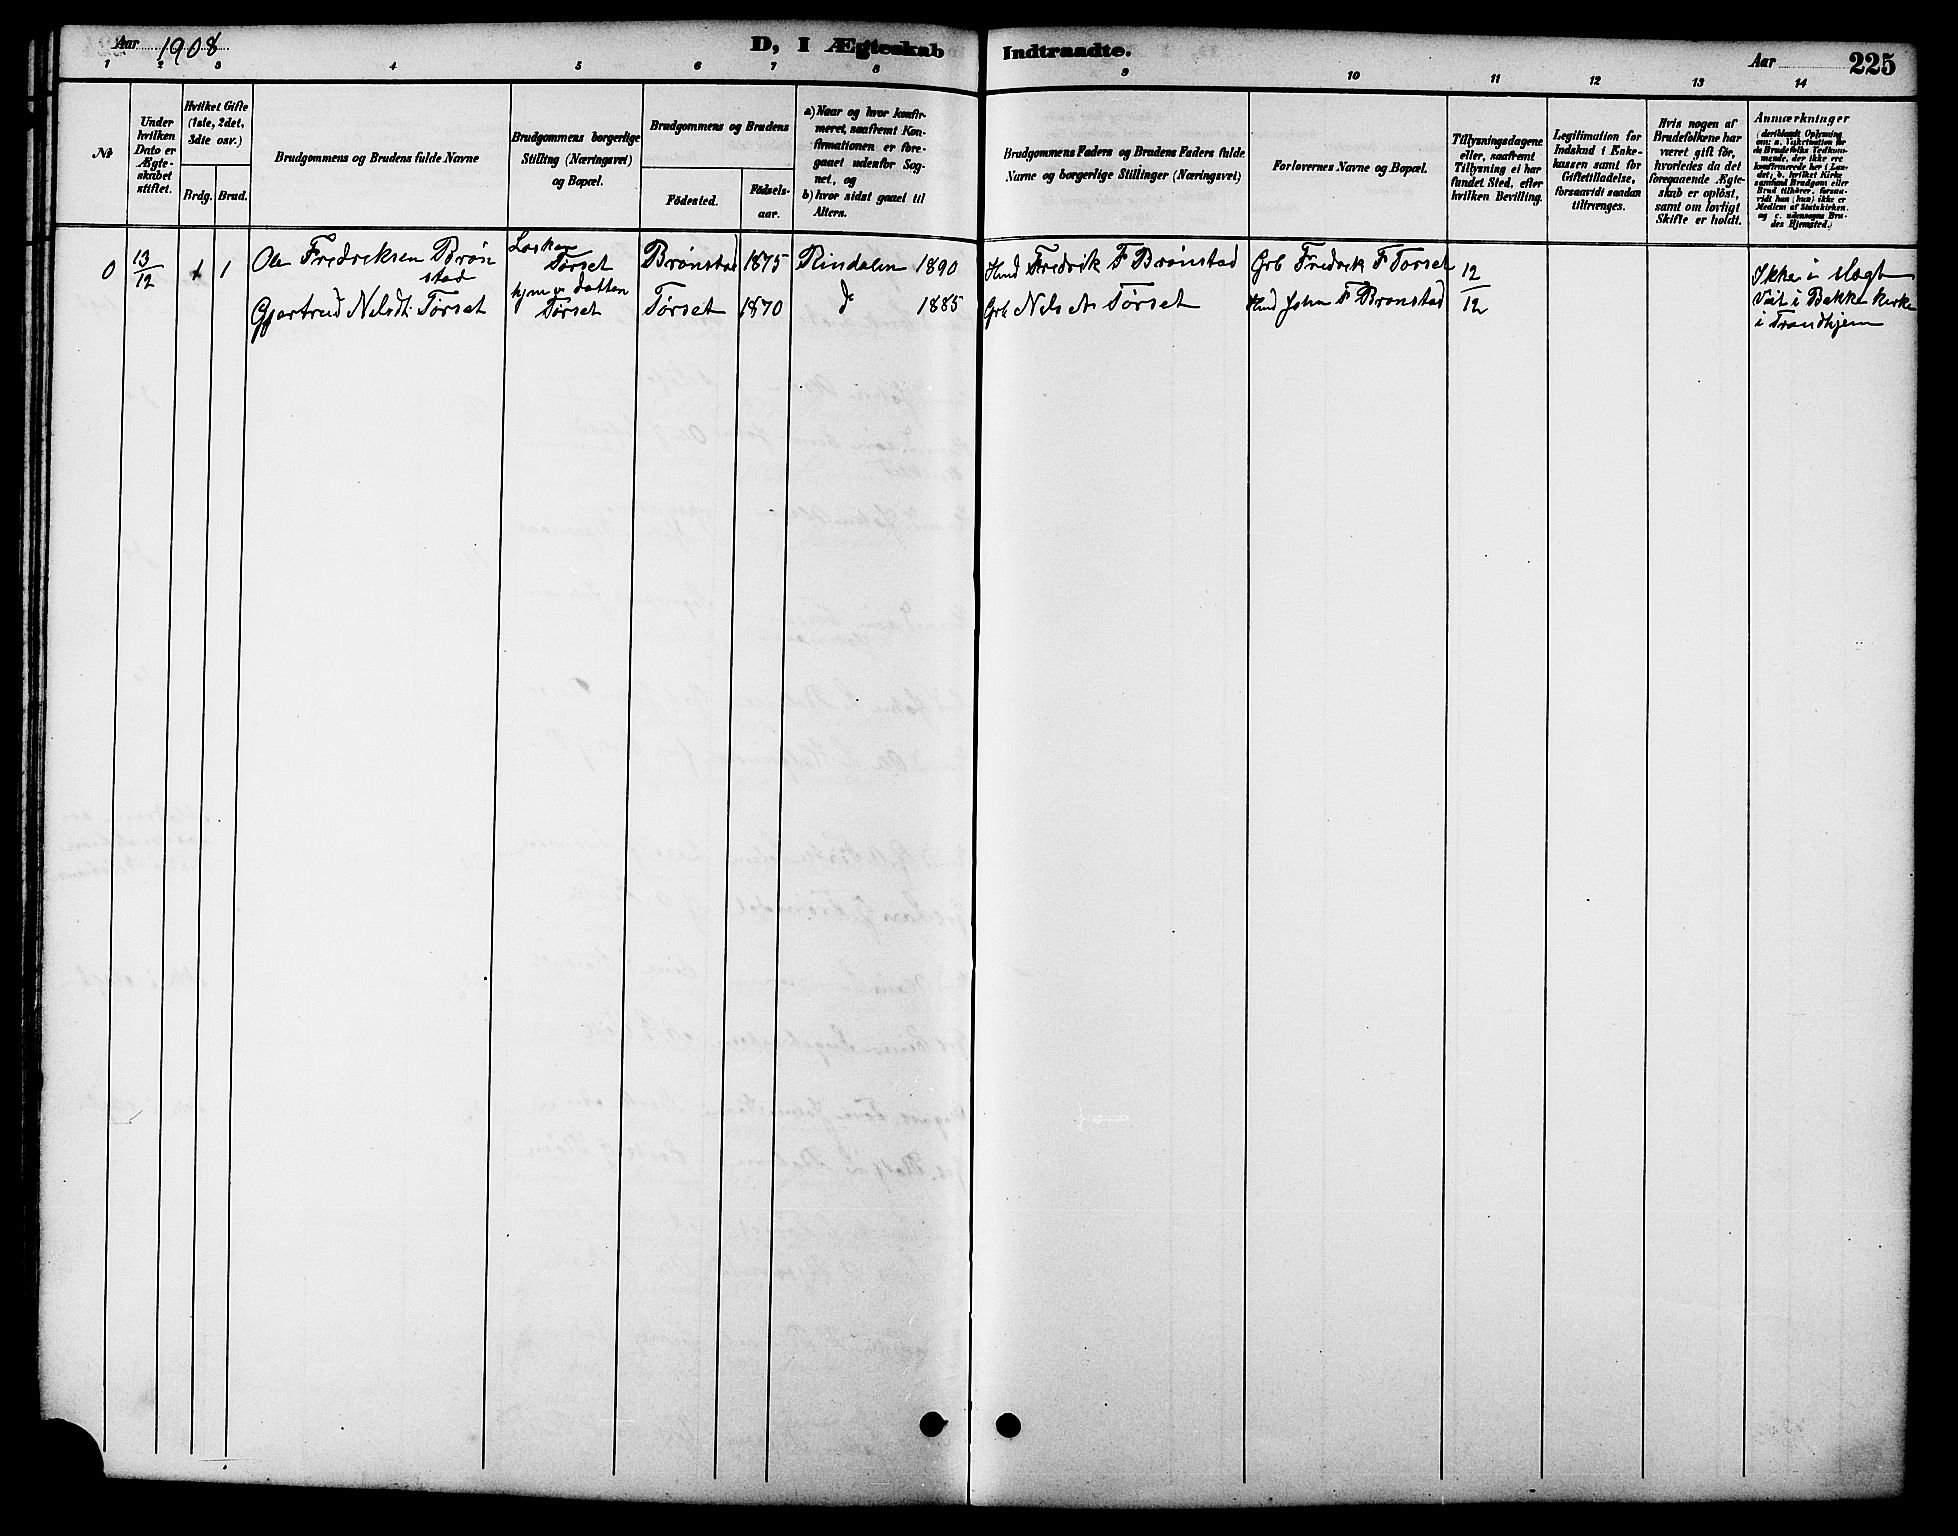 Aar 1908
D, I Ægteskab
Indtraadte.
Aar
225
1 2 3 4 5 6 7 8 9 10 11 12 13 14
Nr
Under hvilken Dato er Ægteskabet stiftet.
Hvilket Gifte (1ste, 2det, 3die osv.)
Brdg. Brud.
Brudgommens og Brudens fulde Navne
Brudgommens borgerlige Stilling (Næringsvei) og Bopæl.
Brudgommens og Brudens
Fødested.
Fødselsaar.
a) Naar og hvor konfirmeret, saafremt Konfirmationen er foregaaet udenfor Sognet, og
b) hvor sidst gaaet til Alters.
Brudgommens Faders og Brudens Faders fulde Navne og borgerlige Stillinger (Næringsvei)
Forlovernes Navne og Bopæl.
Tillysningsdagene eller, saafremt Tillysning ei har fundet Sted, efter hvilken Bevilling.
Legitimation for Indskud i Enkekassen samt for Giftetilladelse, forsaavidt saadan tiltrænges.
Hvis nogen af Brudefolkene har været gift før, hvorledes da det foregaaende Ægteskab er opløst, samt om lovligt Skifte er holdt.
Anmærkninger
(deriblandt Oplysning om: a. Vaksination for de Brudefolks Vedkommende, der ikke ere konfirmerede her i Landet; b. hvilket Kirkesamfund Brudgom eller Brud tilhører, forsaavidt han (hun) ikke er Medlem af Statskirken, og c. udensogns Brudes Hjemsted.)
0 13/12 1 1 Ole Fredriksen Brønstad Torset Brønstad 1875 Rindalen 1890 Hmd Fredrik F Brønstad Grb Fredrik F Torset 12/12 Ikke i slægt
Gjertrud Nelsdt. Tørset Tørset Tørset 1870 do 1885 Grb Nels As Tørset Hmd John F Brønstad Viet i Bakke Kirke
i Trondhjem